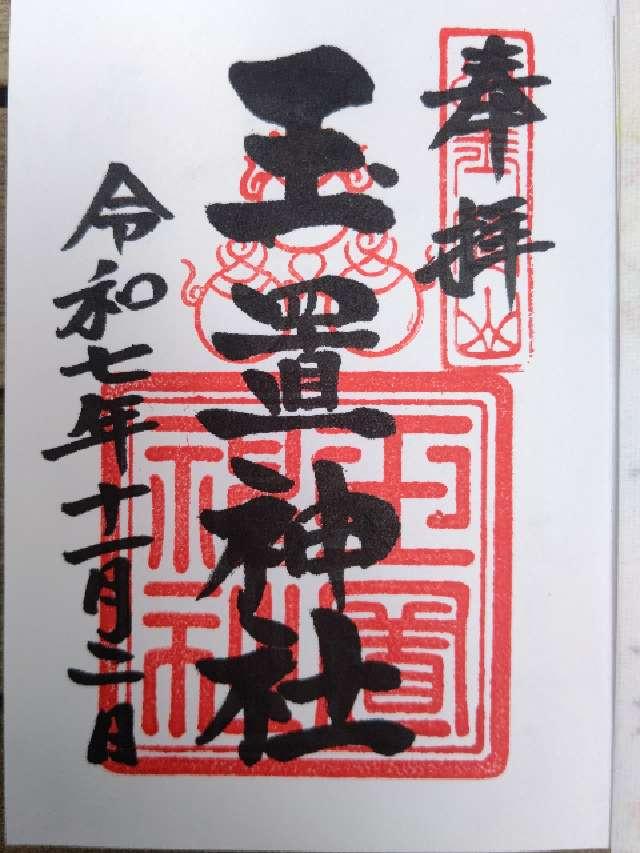 奉拝
玉置神社
令和七年十一月二日
玉置神社